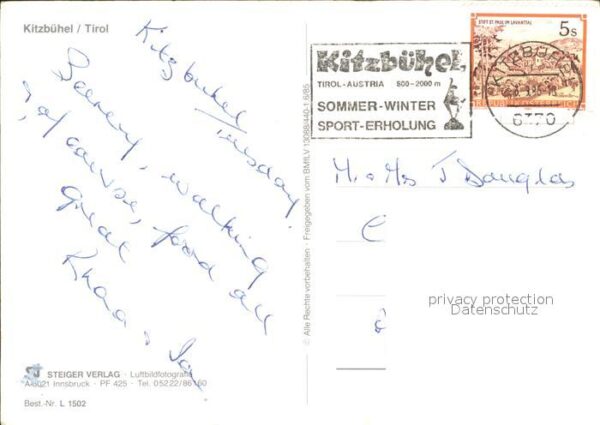 Kitzbühel / Tirol
Kitzbuhel
Tuesday
Scenery, walking
, of course, food all
great
& Ian
STEIGER VERLAG · Luftbildfotografie
A-6021 Innsbruck · PF 425 · Tel. 05222/86160
Best.-Nr. L 1502
© Alle Rechte vorbehalten · Freigegeben vom BMfLV 13088/440-1.6/85
Kitzbühel
TIROL-AUSTRIA 800-2000 m
SOMMER-WINTER
SPORT-ERHOLUNG
STIFT ST. PAUL IM LAVANTTAL
5s
REPUBLIK ÖSTERREICH
KITZBÜHEL
6370
Mr & Mrs J Douglas
privacy protection
Datenschutz